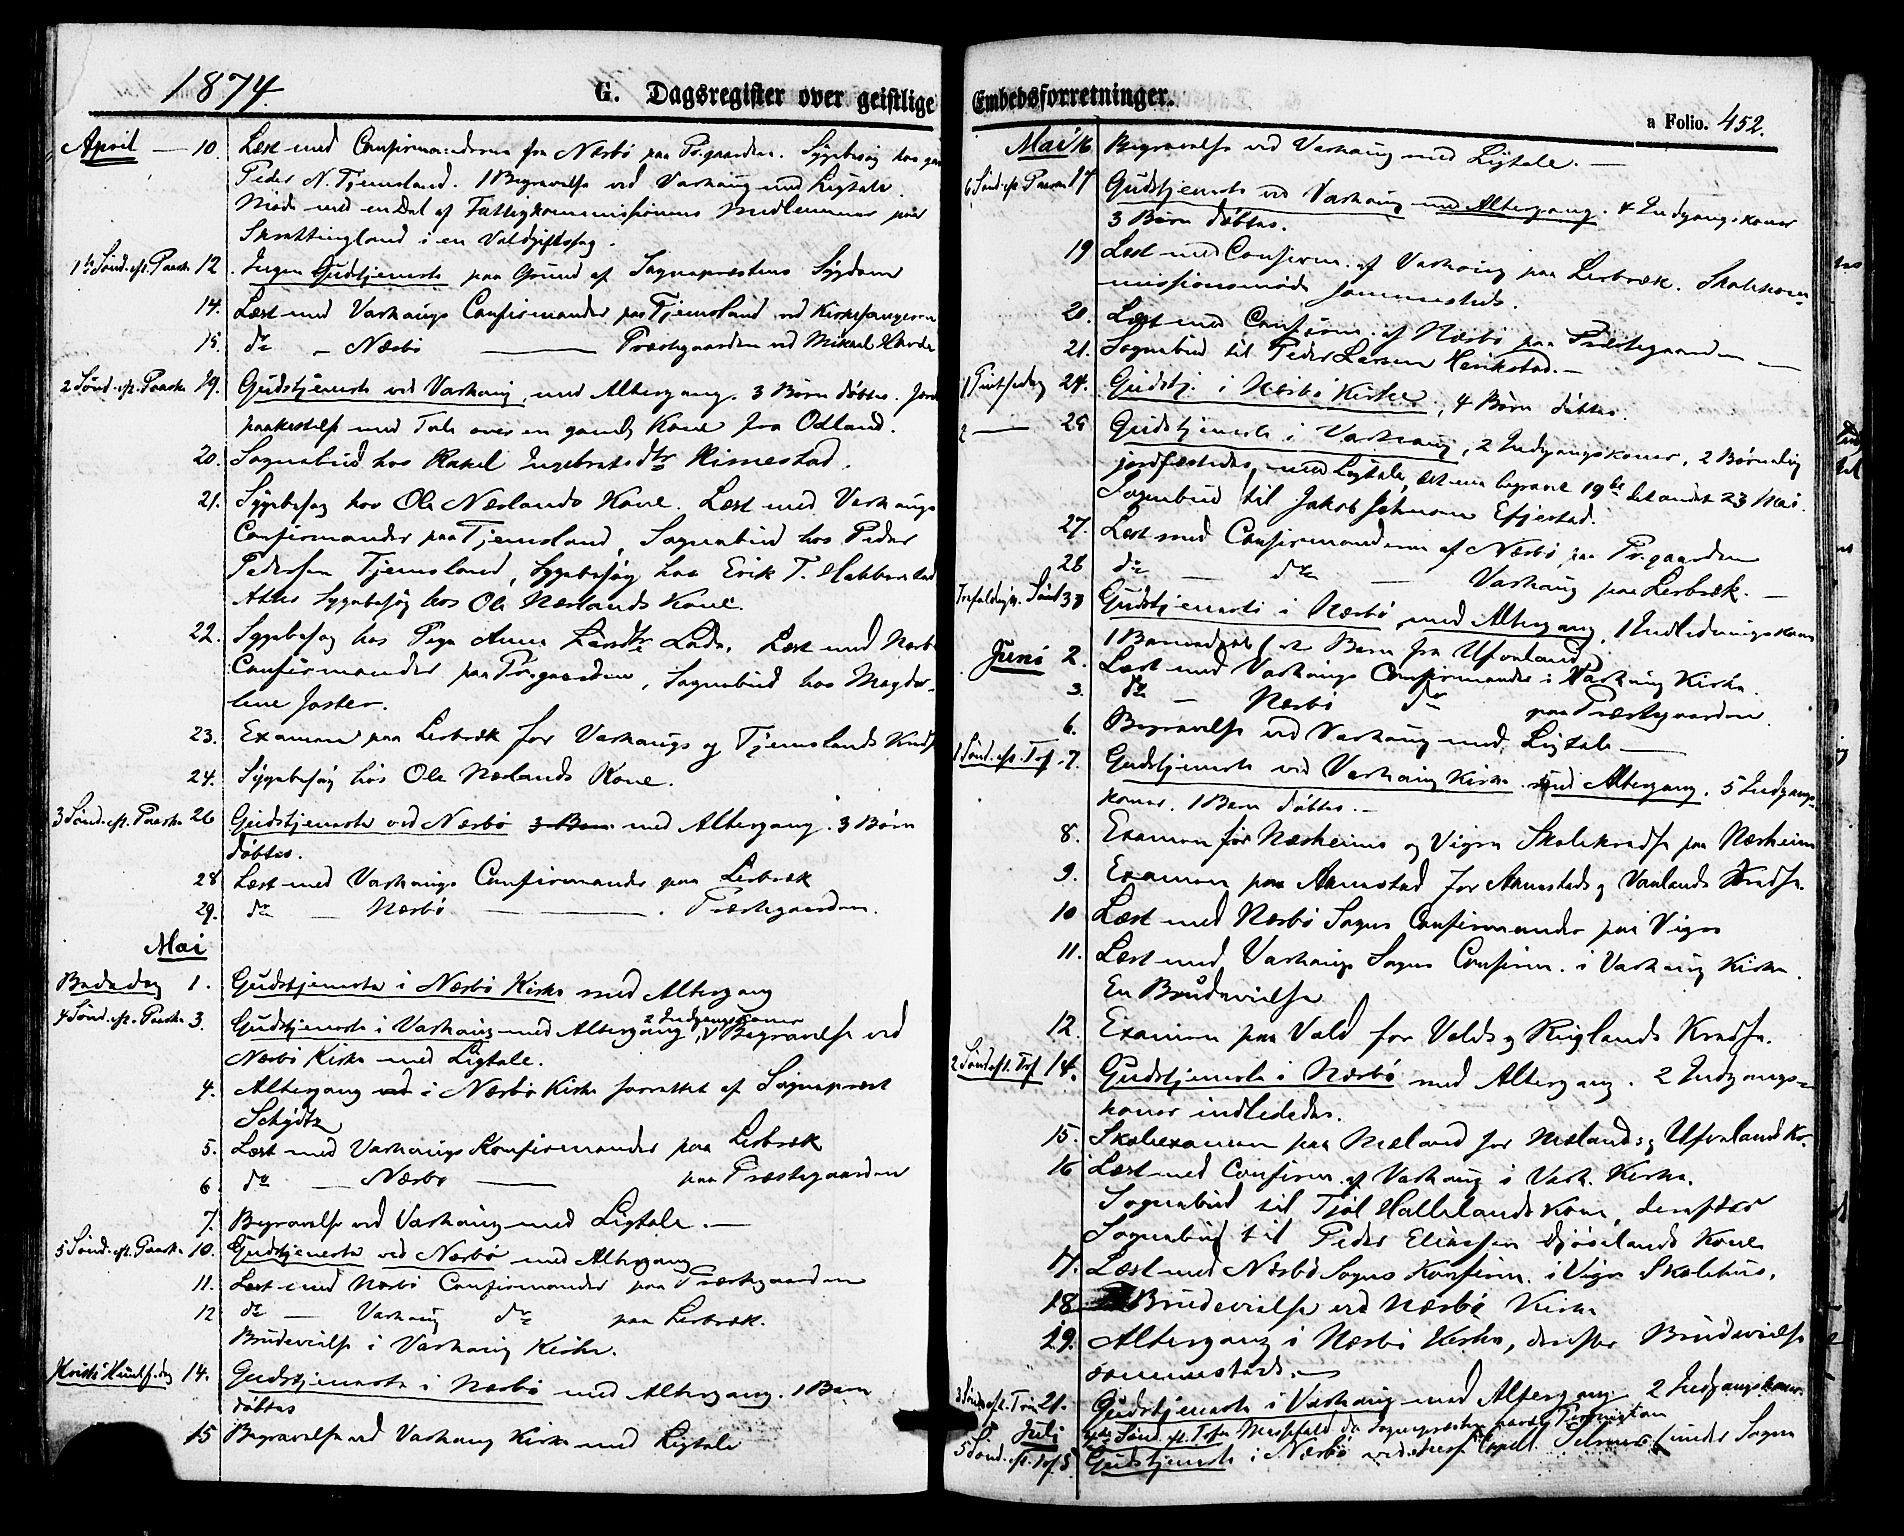 1874.
G. Dagsregister over geistlige
April — 10. Læst med Confirmanderne fra Nærbø paa Pr.gaarden. Sygebesøg hos
Peder N. Tjemsland. 1 Begravelse ved Varhaug med Ligtale.
Møde med en Del af Fattigkommissionens Medlemmer paa
Skrettingland i en Valdgiftssag.
1ste Sønd. eft. Paaske 12. Ingen Gudstjeneste paa Grund af Sognepræstens Sygdom
14. Læst med Varhaugs Confirmander paa Tjemsland ved Kirkesangeren
15. do — Nærbø — Præstegaarden ved Mikael
2 Sønd. eft. Paaske 19. Gudstjeneste ved Varhaug, med Altergang. 3 Børn døbtes. Jord
paakastelse med Tale over en gammel Kone fra Odland.
20. Sognebud hos Rakel Ingebretsdtr Himestad.
21. Sygebesøg hos Ole Nærlands Kone. Læst med Varhaugs
Confirmander paa Tjemsland, Sognebud hos Peder
Pedersen Tjemsland, Sygebesøg hos Erik T.
Atter Sygebesøg hos Ole Nærlands Kone.
22. Sygebesøg hos Pige Anna Lade. Læst med Nærbø
Confirmander paa Pr.gaarden, Sognebud hos Magda-
lene Joster.
23. Examen paa Lerbræk for Varhaugs og Tjemslands Kreds
24. Sygebesøg hos Ole Nærlands Kone.
3 Sønd. eft. Paaske 26 Gudstjeneste ved Nærbø 3 Børn med Altergang. 3 Børn
døbtes.
28 Læst med Varhaugs Confirmander paa Lerbræk
29. do — Nærbø — Præstegaarden.
Mai
Bededag 1. Gudstjeneste i Nærbø Kirke med Altergang
2 Indgangskoner
4 Sønd. eft. Paaske 3. Gudstjeneste i Varhaug med Altergang, Begravelse ved
Nærbø Kirke med Ligtale.
4. Altergang ved i Nærbø Kirke forrettet af Sognepræst
Schjøtz
5. Læst med Varhaugs Konfirmander paa Lerbræk
6 do — Nærbø — paa Præstegaarden
7. Begravelse ved Varhaug med Ligtale. —
5 Sønd. eft. Paaske 10. Gudstjeneste ved Nærbø med Altergang
11. Læst med Nærbø Confirmander paa Præstegaarden
12 do — Varhaug do paa Lerbræk.
Brudevielse i Varhaug Kirke.
Kristi Himlf.dag 14. Gudstjeneste i Nærbø med Altergang. 1 Barn
døbtes
15 Begravelse ved Varhaug Kirke med Ligtale
Embedsforretninger.
a Folio. 452.
Mai 16 Begravelse ved Varhaug med Ligtale. —
6 Sønd. eft. Paaske 17 Gudstjeneste ved Varhaug med Altergang. 4 Indgangskoner
3 Børn døbtes.
19 Læst med Confirm. af Varhaug paa Lerbræk. Skolekom-
missionsmøde sammesteds.
20. Læst med Confirm. af Nærbø paa Præstegaarden —
21. Sognebud til Peder Larsen Herikstad. —
1 Pintsedag 24. Gudstj. i Nærbø Kirke, 4 Børn døbtes.
2 — 25 Gudstjeneste i Varhaug, 2 Indgangskoner, 2 Børnelig
jordfæstedes med Ligtale, det ene begravet 19de det andet 23 Mai.
Sognebud til Jakob Johnsen
27. Læst med Confirmanderne af Nærbø paa Pr.gaarden
28 do — do — Varhaug paa Lerbræk. —
Trefoldigh. Sønd 31 Gudstjeneste i Nærbø med Altergang, 1 Indledningskone
1 Barnedaab (et Barn fra Ueland)
Juni 2. Læst med Varhaugs Confirmander i Varhaug Kirke.
3. do — Nærbø do paa Præstegaarden.
6. Begravelse ved Varhaug med Ligtale —
1 Sønd. eft. Tref. 7. Gudstjeneste ved Varhaug Kirke med Altergang. 5 Indgangs-
koner. 1 Barn døbtes. —
8. Examen for Næsheims og Vigre Skolekredse paa Næsheim
9. Examen paa Aanestad for Aanestads og Vanlands Kredse.
10 Læst med Nærbø Sogns Confirmander paa Vigre
11. Læst med Varhaugs Sogns Confirm. i Varhaug Kirke.
En Brudevielse
12. Examen paa Vold for Volds og Ruglands Kredse.
2 Sønd eft. Tref 14. Gudstjeneste i Nærbø med Altergang. 2 Indgangs-
koner indlededes.
15. Skoleexamen paa Mæland for Mælands og Uelands Kr.
16 Læst med Confirm. af Varhaug i Varh. Kirke.
Sognebud til Tjøl Hallelands Kone, derefter
Sognebud til Peder Eliassen Djøselands Kone
17. Læst med Nærbø Sogns Konfirm. i Vigre Skolehus.
18 Brudevielse ved Nærbø Kirke
19. Altergang i Nærbø Kirke, derefter Brudevielse
sammesteds. —
3 Sønd eft. Tref 21. Gudstjeneste i Varhaug med Altergang 2 Indgangskoner
Juli 4de Sønd. eft. Tref. Messefald da Sognepræsten havde Permission
5 Sønd. eft. Tref 5 Gudstjeneste i Nærbø ved pers. Capell. Selmer (under Sogne